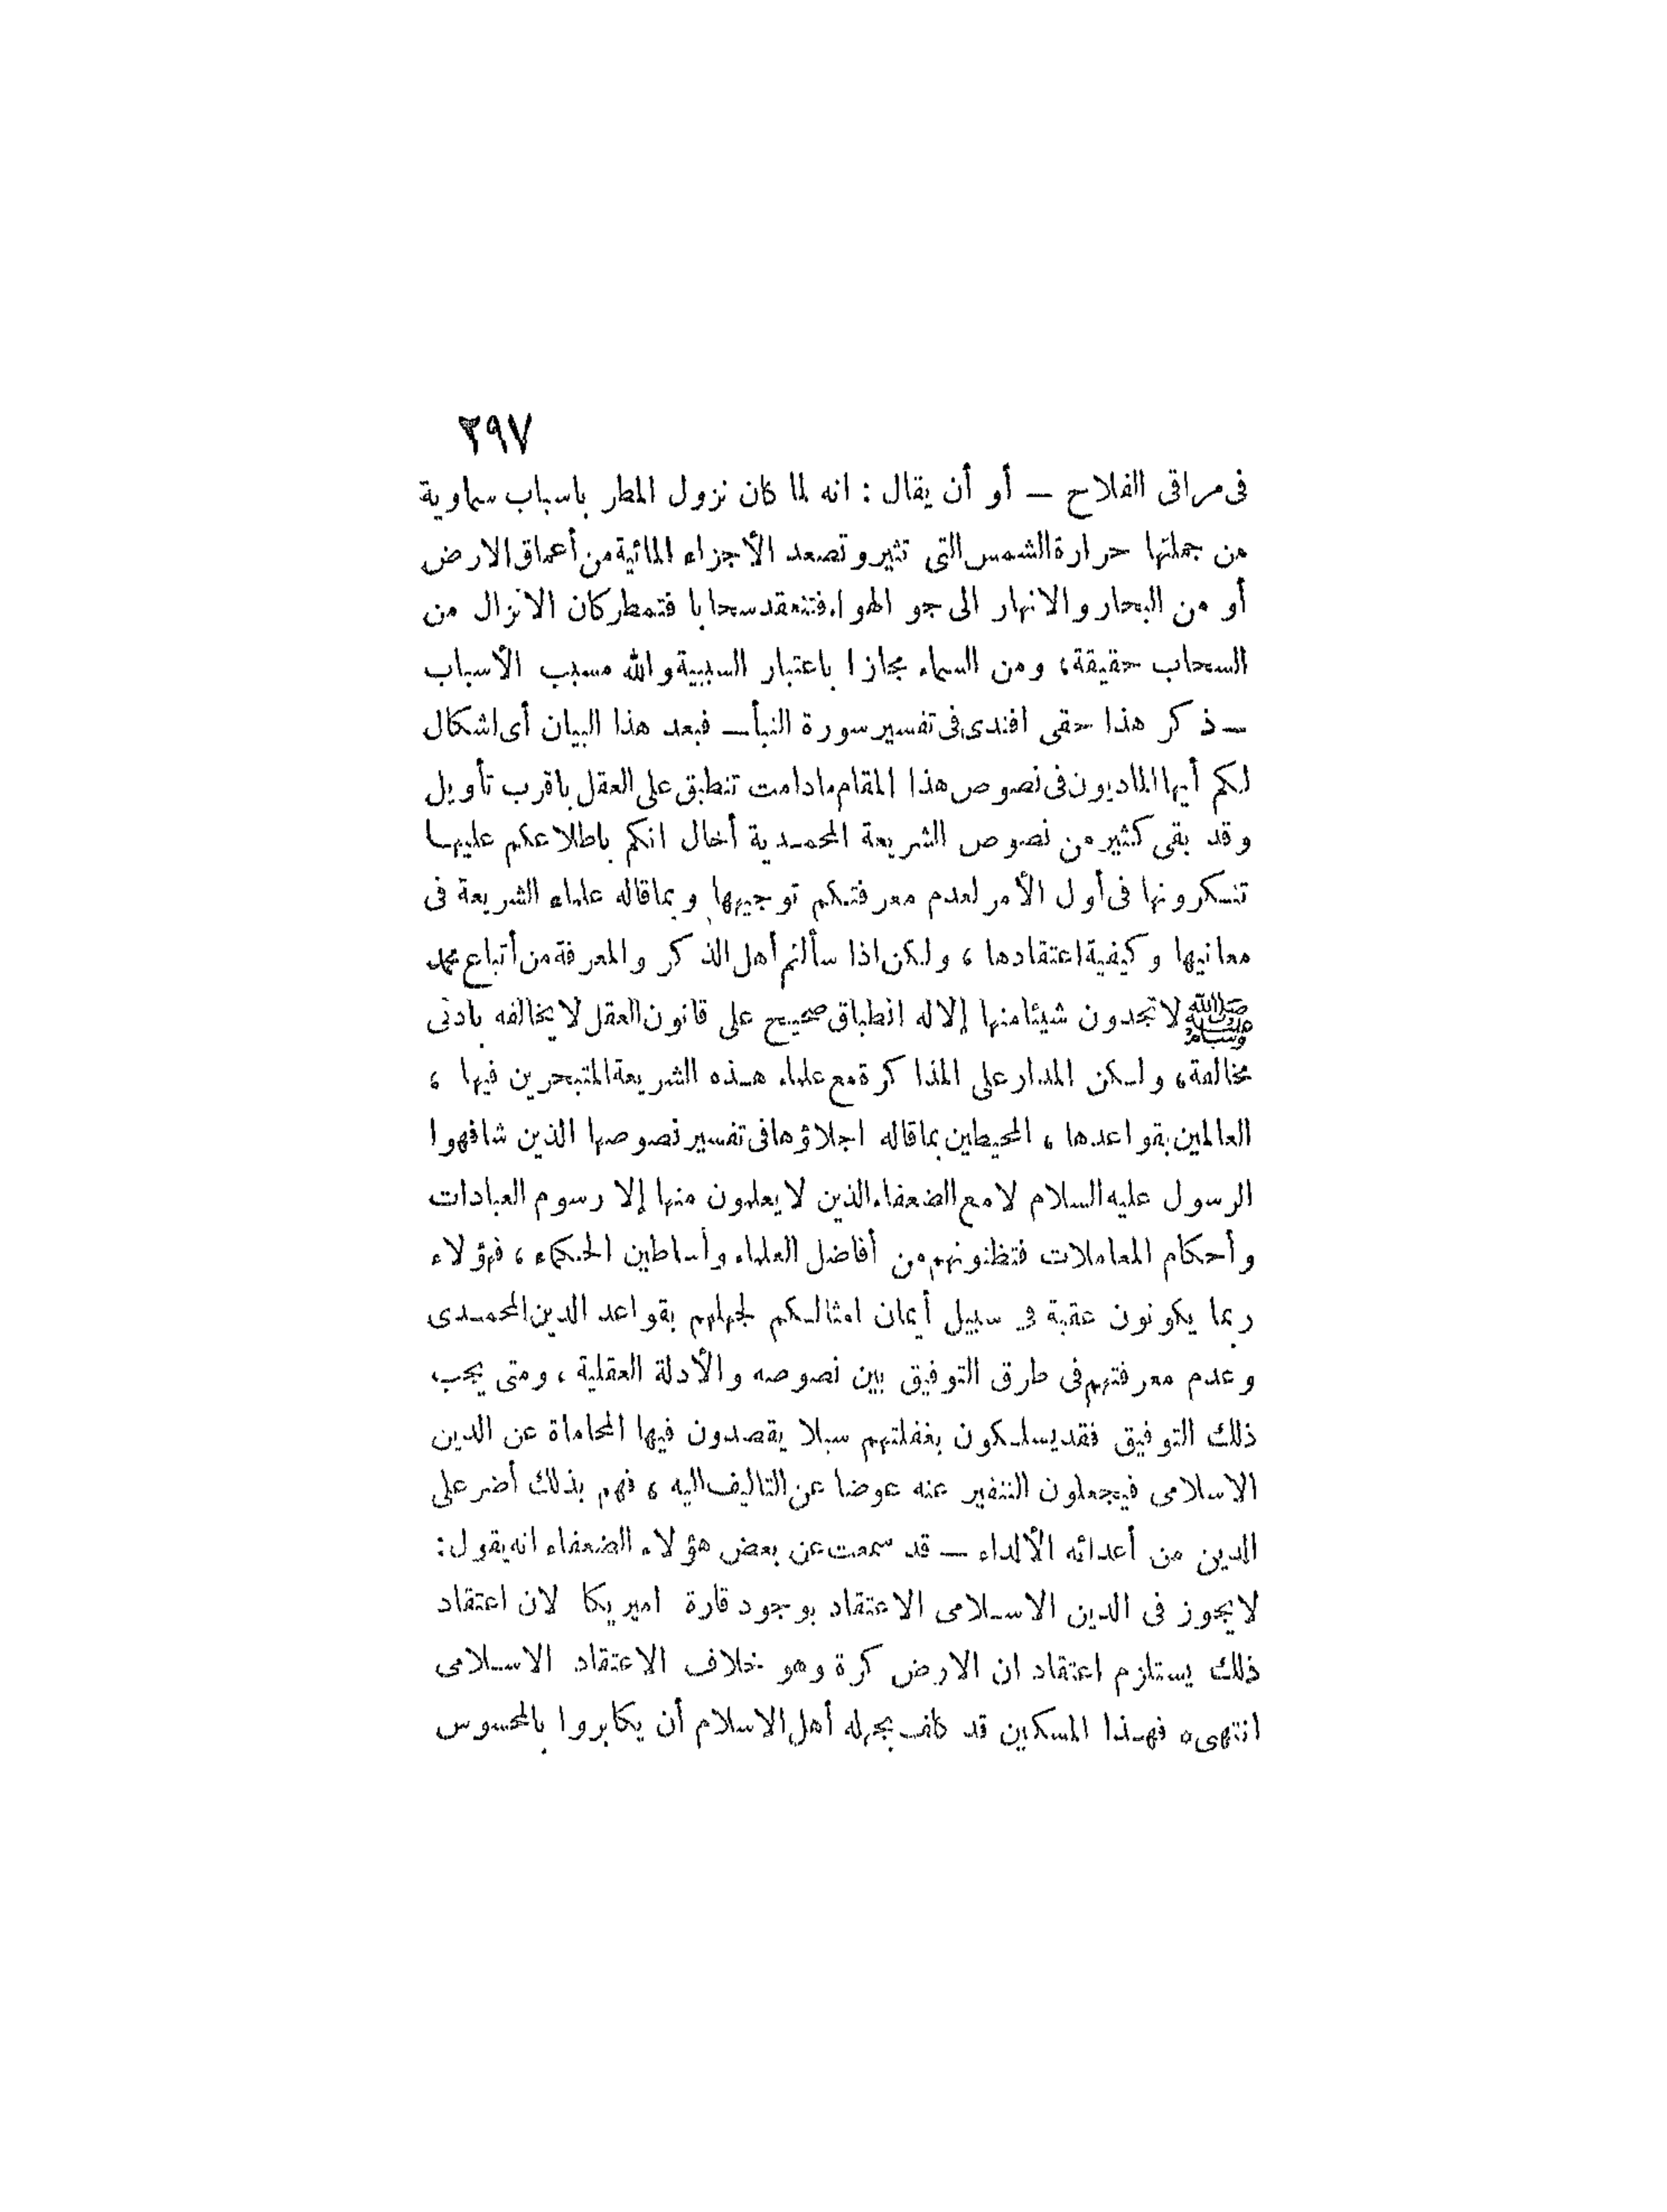 ٢٩٧
فى مراقى الفلاح — أو أن يقال : انه لما كان نزول المطر باسباب سماوية
من جملتها حرارة الشمس التى تثير وتصعد الأجزاء المائية من أعماق الارض
أو من البحار والانهار الى جو الهواء فتنعقد سحابا فتمطر كان الانزال من
السحاب حقيقة ، ومن السماء مجازا باعتبار السببية والله مسبب الأسباب
— ذكر هذا حقى افندى فى تفسير سورة النبأ — فبعد هذا البيان أى اشكال
لكم أيها الماديون فى نصوص هذا المقام مادامت تنطبق على العقل باقرب تأويل
وقد بقى كثير من نصوص الشريعة المحمدية أخال انكم باطلاعكم عليها
تنكرونها فى أول الأمر لعدم معرفتكم توجيهها وبماقاله علماء الشريعة فى
معانيها وكيفية اعتقادها ، ولكن اذا سألتم أهل الذكر والمعرفة من أتباع محمد
ﷺ لا تجدون شيئا منها إلا له انطباق صحيح على قانون العقل لا يخالفه بادنى
مخالفة ، ولكن المدار على المذاكرة مع علماء هذه الشريعة المتبحرين فيها ،
العالمين بقواعدها ، المحيطين بماقاله اجلاؤها فى تفسير نصوصها الذين شافهوا
الرسول عليه السلام لا مع الضعفاء الذين لا يعلمون منها إلا رسوم العبادات
وأحكام المعاملات فتظنونهم من أفاضل العلماء وأساطين الحكماء ، فهؤلاء
ربما يكونون عقبة فى سبيل أيمان امثالكم لجهلهم بقواعد الدين المحمدى
وعدم معرفتهم فى طرق التوفيق بين نصوصه والأدلة العقلية ، ومتى يجب
ذلك التوفيق فقد يسلكون بغفلتهم سبلا يقصدون فيها المحاماة عن الدين
الاسلامى فيجعلون التنفير عنه عوضا عن التاليف اليه ، فهم بذلك أضر على
الدين من أعدائه الألداء — قد سمعت عن بعض هؤلاء الضعفاء انه يقول :
لا يجوز فى الدين الاسلامى الاعتقاد بوجود قارة اميريكا لان اعتقاد
ذلك يستلزم اعتقاد ان الارض كرة وهو خلاف الاعتقاد الاسلامى
انتهى ، فهذا المسكين قد كلف بجهله أهل الاسلام أن يكابروا بالمحسوس